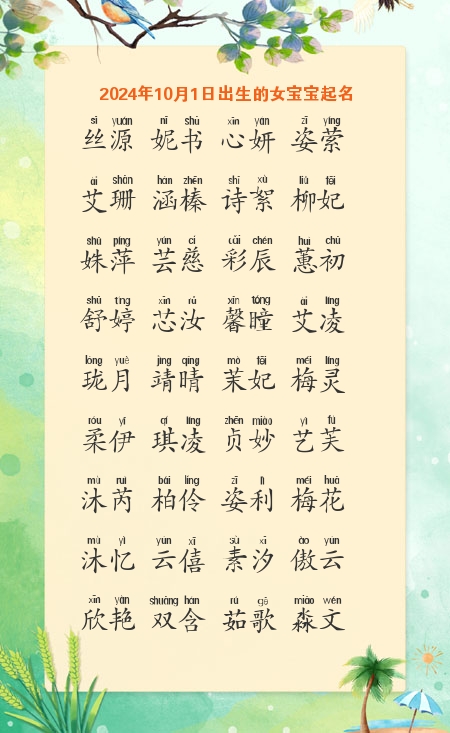 2024年10月1日出生的女宝宝起名
sī yuán nī shū xīn yán zī yíng
丝源 妮书 心妍 姿萦
ài shān hán zhēn shī xù liǔ fēi
艾珊 涵榛 诗絮 柳妃
shū píng yún cí cǎi chén huì chū
姝萍 芸慈 彩辰 蕙初
shū tíng xīn rǔ xīn tóng ài líng
舒婷 芯汝 馨瞳 艾凌
lóng yuè jìng qíng mò fēi méi líng
珑月 靖晴 茉妃 梅灵
róu yī qí líng zhēn miào yì fú
柔伊 琪凌 贞妙 艺芙
mù ruì bǎi líng zī lì méi huā
沐芮 柏伶 姿利 梅花
mù yì yún xī sù xī ào yún
沐忆 云僖 素汐 傲云
xīn yàn shuāng hán rú gē miǎo wén
欣艳 双含 茹歌 淼文